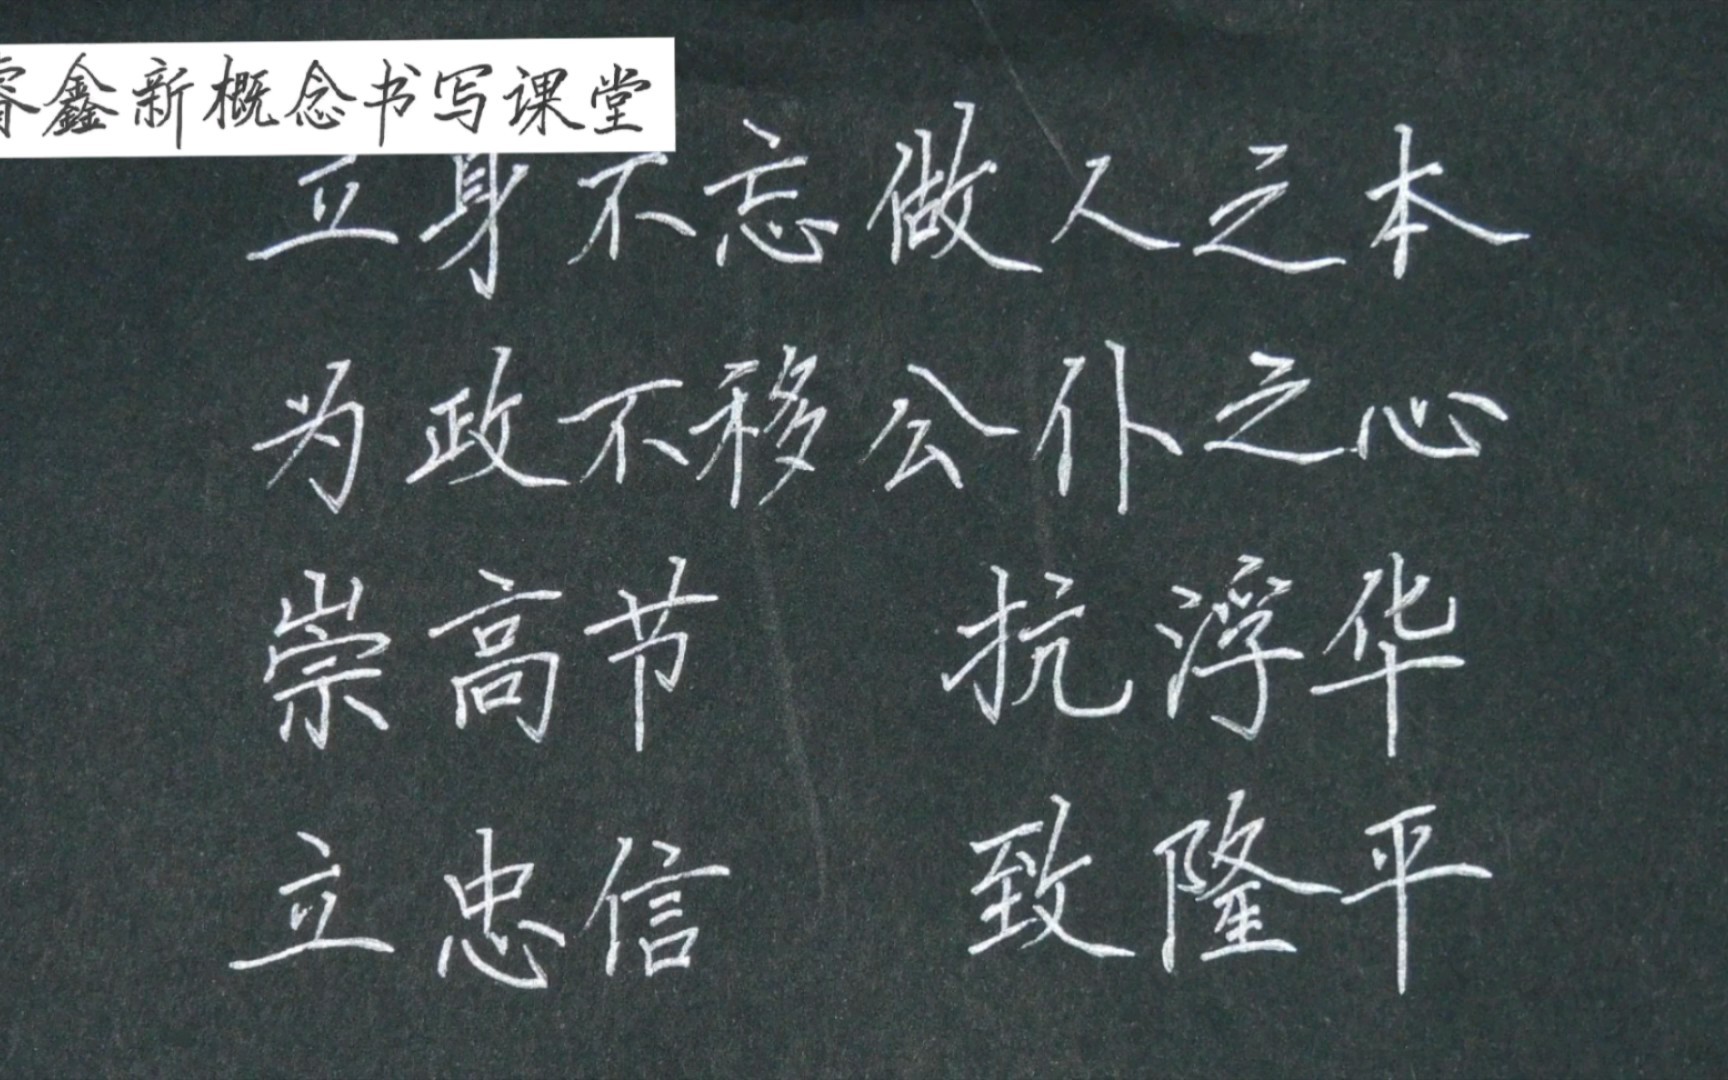 睿鑫新概念书写课堂
立身不忘做人之本
为政不移公仆之心
崇高节 抗浮华
立忠信 致隆平